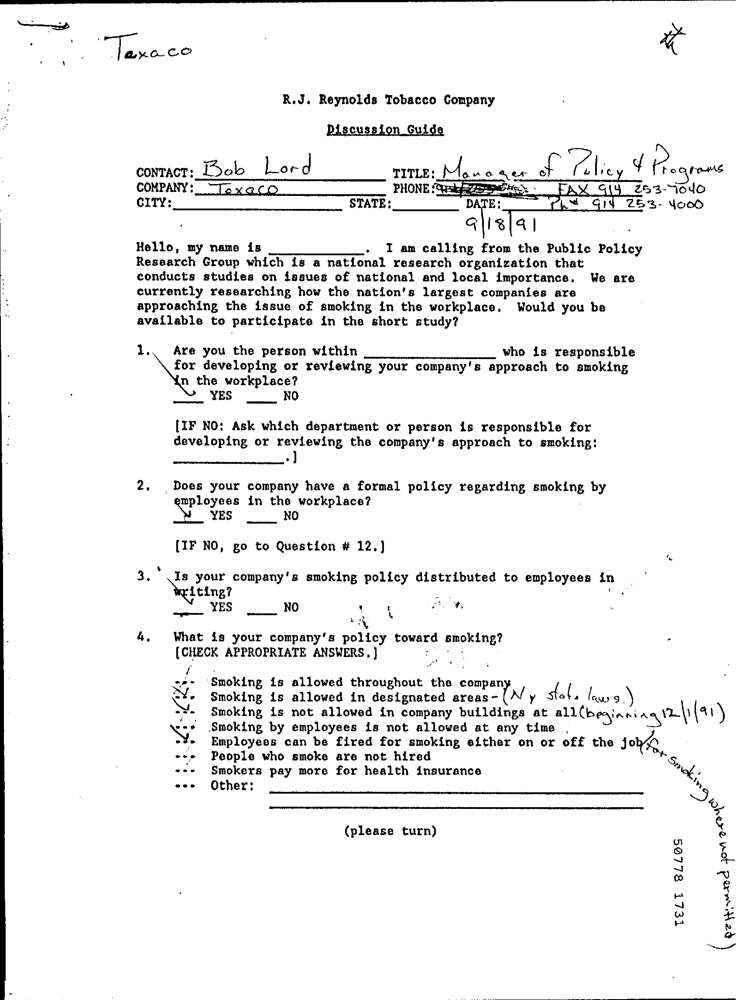 Texaco
R.J. Reynolds Tobacco Company
Discussion Guide
CONTACT: Bob Lord TITLE: Manager of Policy & Programs
COMPANY: Texaco PHONE: FAX 914 253-7040
CITY: STATE: DATE: Ph# 914 253-4000
9/18/91
Hello, my name is ______________. I am calling from the Public Policy
Research Group which is a national research organization that
conducts studies on issues of national and local importance. We are
currently researching how the nation's largest companies are
approaching the issue of smoking in the workplace. Would you be
available to participate in the short study?
1. Are you the person within ____________________ who is responsible
for developing or reviewing your company's approach to smoking
in the workplace?
____ YES ____ NO
[IF NO: Ask which department or person is responsible for
developing or reviewing the company's approach to smoking:
________________.]
2. Does your company have a formal policy regarding smoking by
employees in the workplace?
____ YES ____ NO
[IF NO, go to Question # 12.]
3. Is your company's smoking policy distributed to employees in
writing?
____ YES ____ NO
4. What is your company's policy toward smoking?
[CHECK APPROPRIATE ANSWERS.]
--- Smoking is allowed throughout the company
--- Smoking is allowed in designated areas - (NY state laws.)
--- Smoking is not allowed in company buildings at all (beginning 12/1/91)
--- Smoking by employees is not allowed at any time
--- Employees can be fired for smoking either on or off the job (for smoking where not permitted)
--- People who smoke are not hired
--- Smokers pay more for health insurance
--- Other: ______________________________
(please turn)
50778 1731